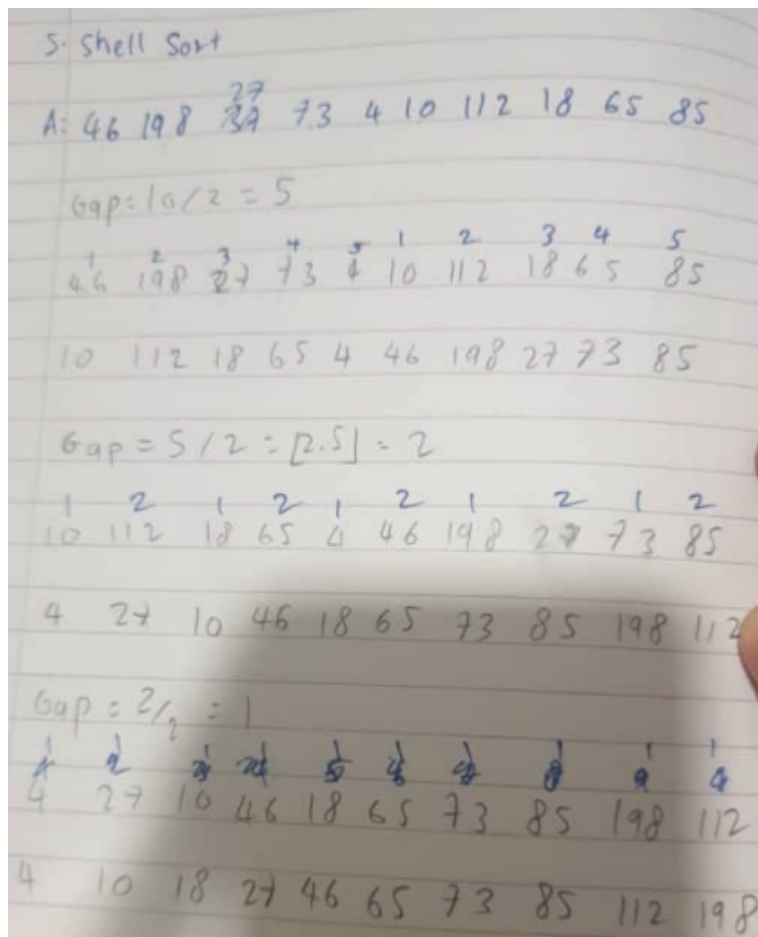 5. Shell Sort
27
A: 46 198 37 73 4 10 112 18 65 85
Gap = 10/2 = 5
1 2 3 4 5 1 2 3 4 5
46 198 27 73 4 10 112 18 65 85
10 112 18 65 4 46 198 27 73 85
Gap = 5/2 = [2.5] = 2
1 2 1 2 1 2 1 2 1 2
10 112 18 65 4 46 198 27 73 85
4 27 10 46 18 65 73 85 198 112
Gap = 2/2 = 1
1 1 1 1 1 1 1 1 1 1
4 27 10 46 18 65 73 85 198 112
4 10 18 27 46 65 73 85 112 198